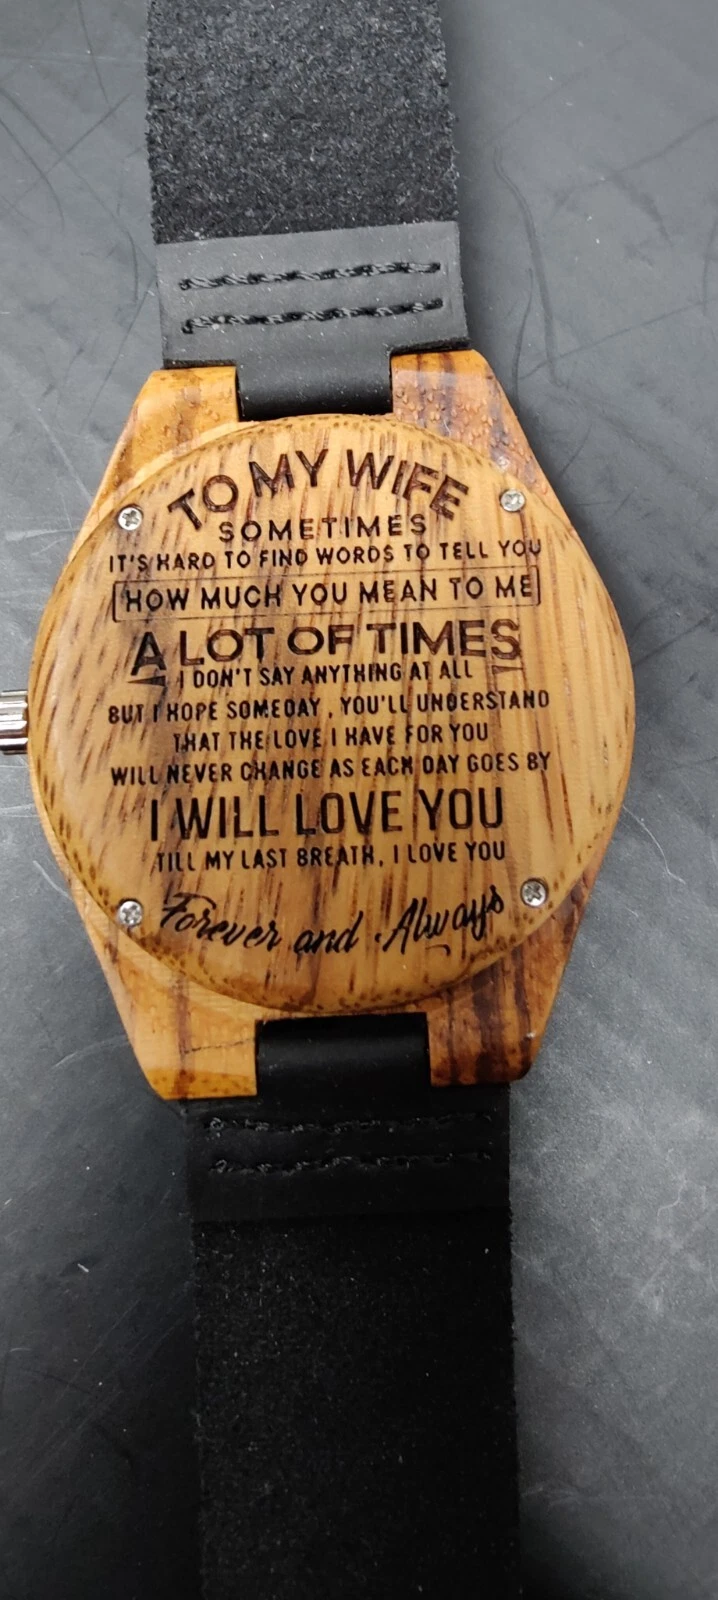 TO MY WIFE
SOMETIMES
IT'S HARD TO FIND WORDS TO TELL YOU
HOW MUCH YOU MEAN TO ME
A LOT OF TIMES
I DON'T SAY ANYTHING AT ALL
BUT I HOPE SOMEDAY, YOU'LL UNDERSTAND
THAT THE LOVE I HAVE FOR YOU
WILL NEVER CHANGE AS EACH DAY GOES BY
I WILL LOVE YOU
TILL MY LAST BREATH, I LOVE YOU
Forever and Always